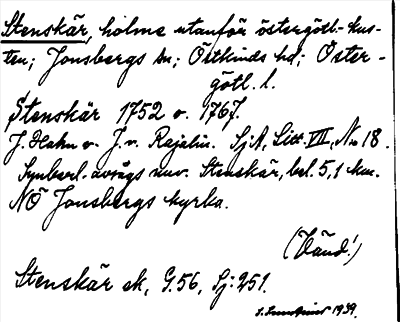 Stenskär, holme utanför östergötl.-kus-
ten; Jonsbergs sn; Östkinds hd; Öster-
götl. l.
Stenskär 1752 o. 1767.
J. Hahn o. J. v. Rajalin. SjA, Litt. VII, No 18.
Synbarl. avsågs nuv. Stenskär, bel. 5,1 km.
NÖ Jonsbergs kyrka.
(Vänd!)
Stenskär ek, G.56, Sj:251.
1939.